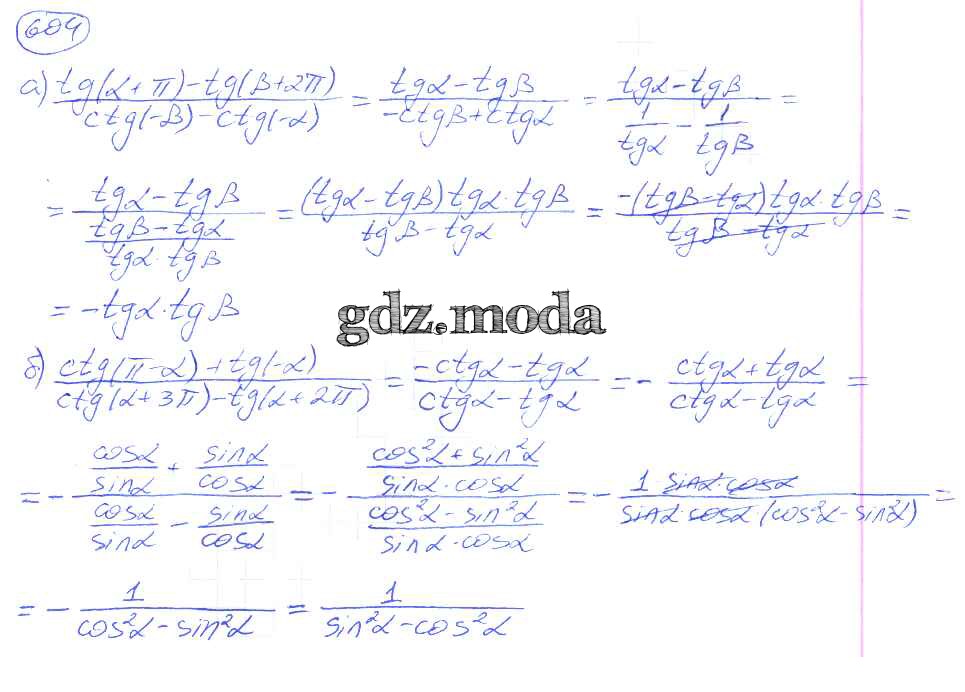 604
а) tg(α+π)-tg(β+2π) / ctg(-β)-ctg(-α) = tgα-tgβ / -ctgβ+ctgα = tgα-tgβ / (1/tgα - 1/tgβ) =
= tgα-tgβ / ((tgβ-tgα)/(tgα·tgβ)) = (tgα-tgβ)tgα·tgβ / tgβ-tgα = -(tgβ-tgα)tgα·tgβ / tgβ-tgα =
= -tgα·tgβ
gdz.moda
б) ctg(π-α)+tg(-α) / ctg(α+3π)-tg(α+2π) = -ctgα-tgα / ctgα-tgα = - ctgα+tgα / ctgα-tgα =
= - (cosα/sinα + sinα/cosα) / (cosα/sinα - sinα/cosα) = - ((cos²α+sin²α)/(sinα·cosα)) / ((cos²α-sin²α)/(sinα·cosα)) = - 1 sinα·cosα / sinα·cosα(cos²α-sin²α) =
= - 1 / cos²α-sin²α = 1 / sin²α-cos²α